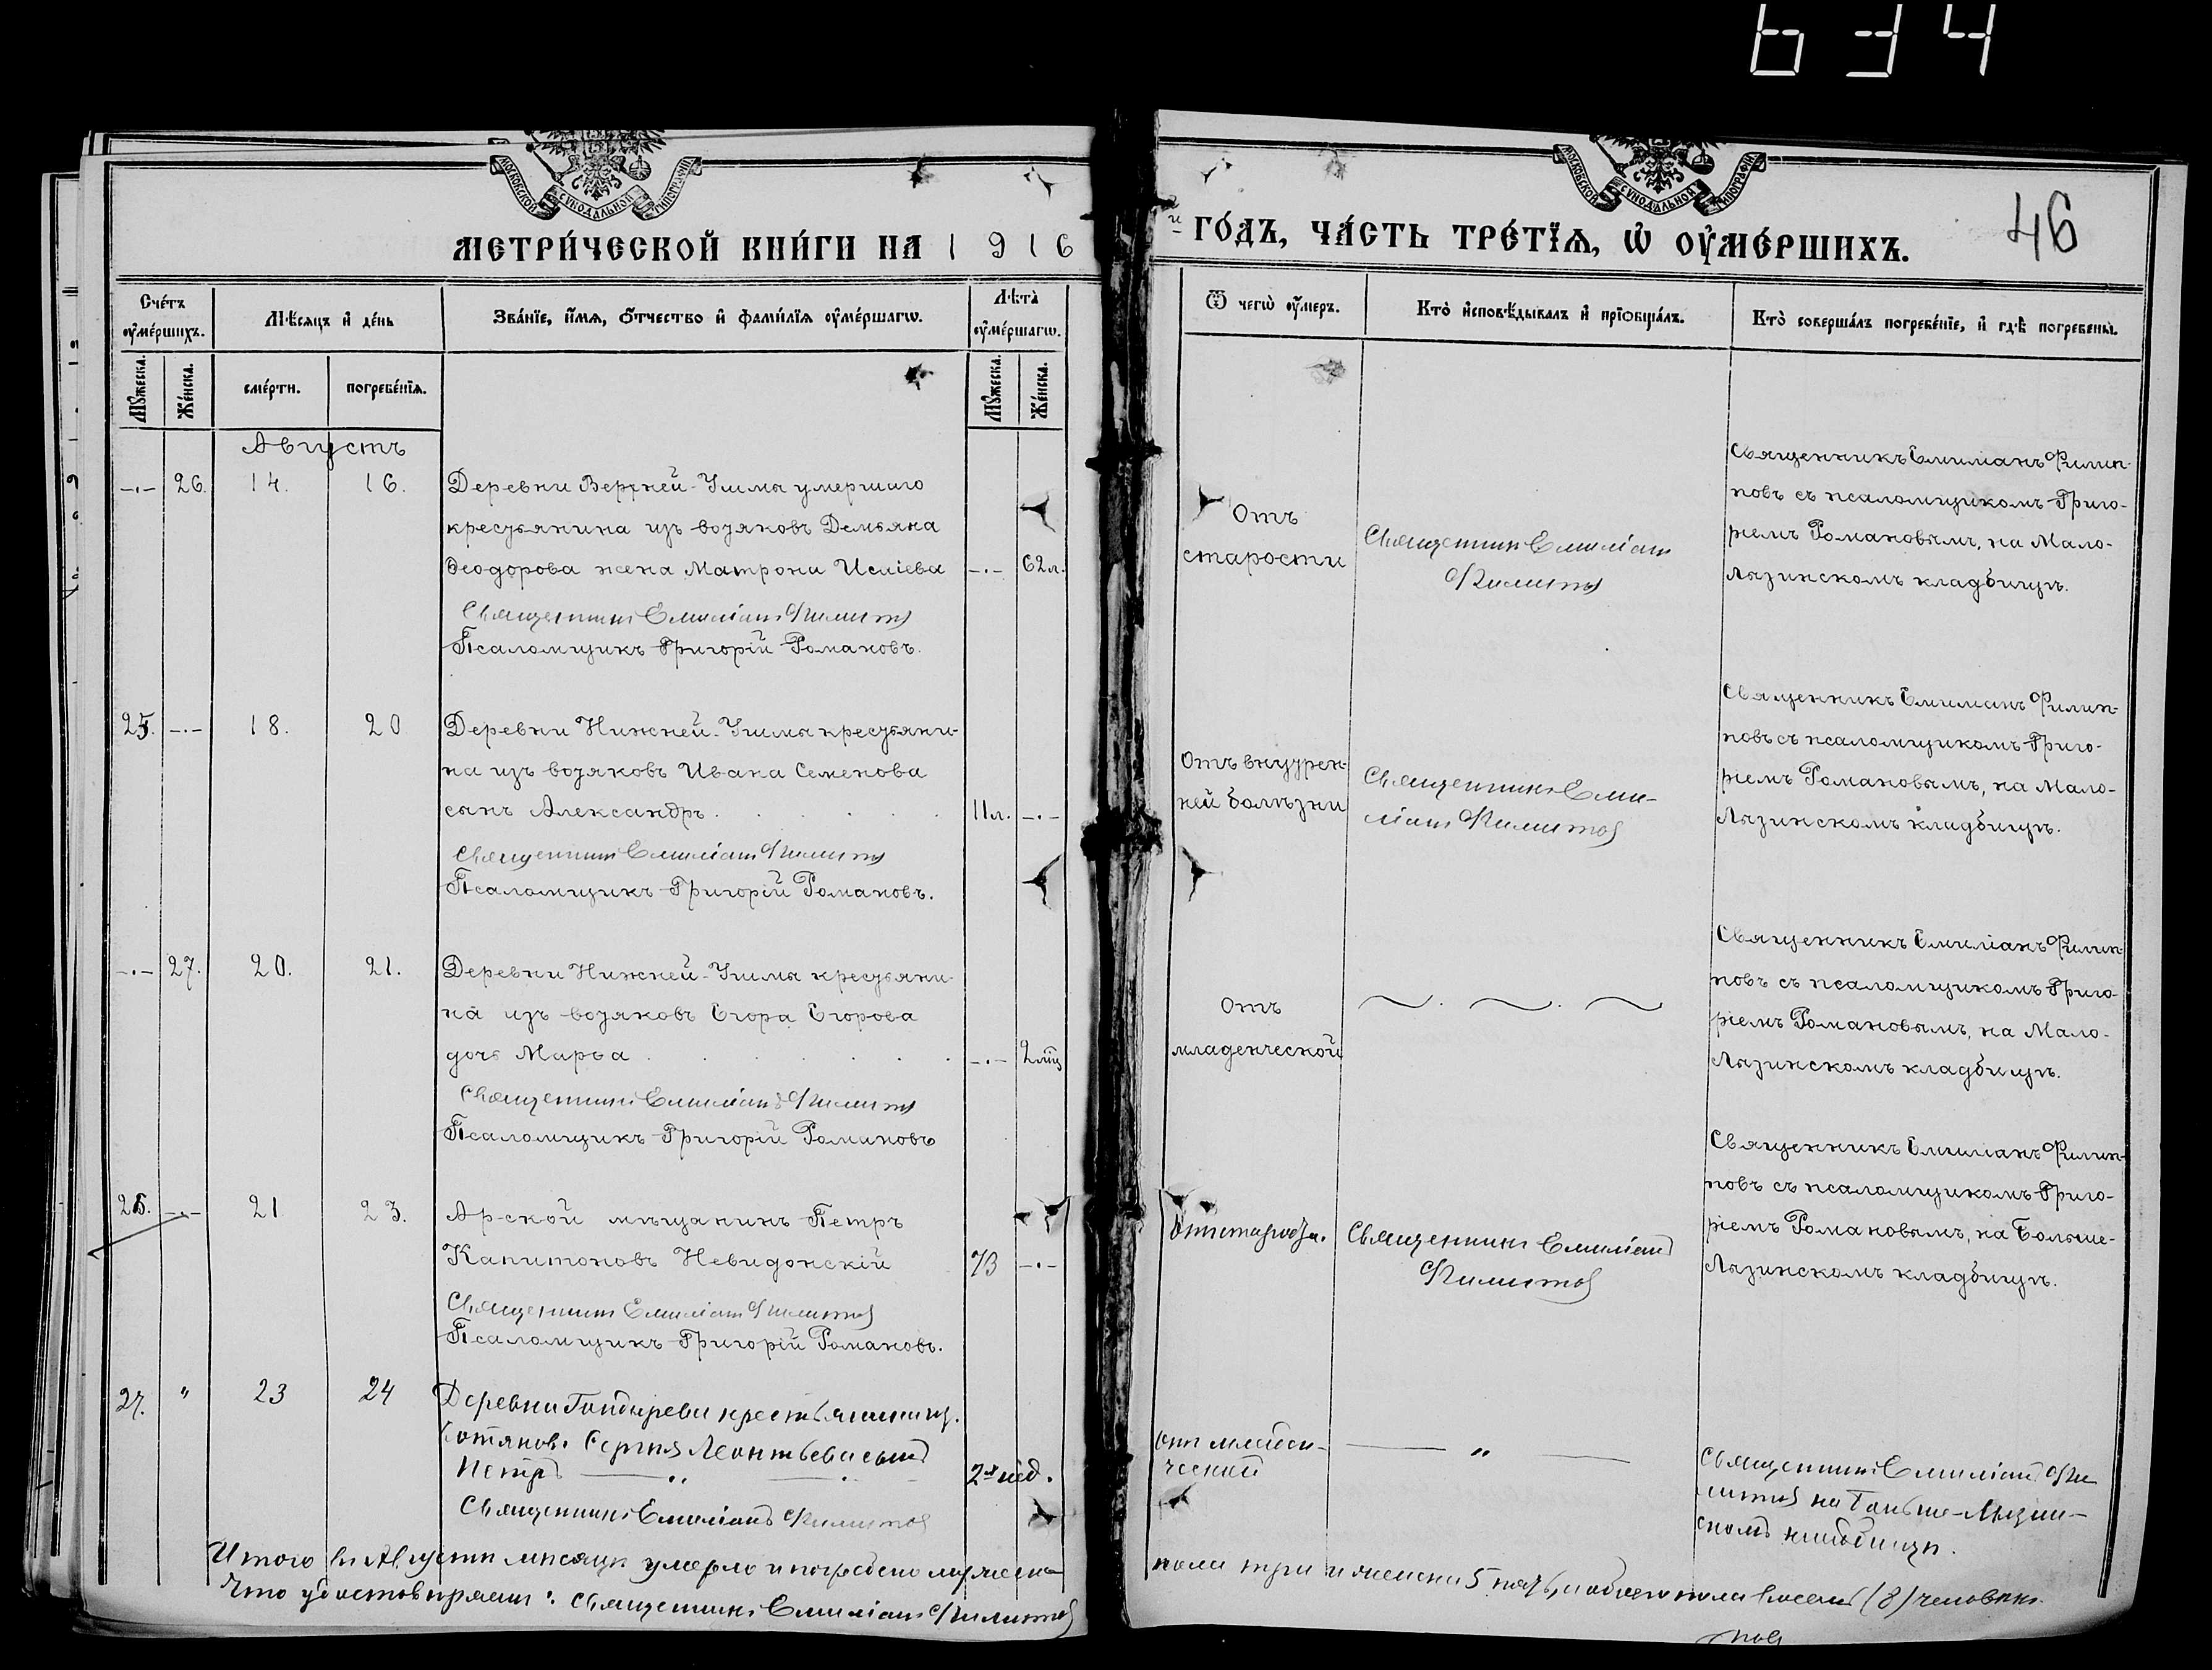 634
МОСКОВСКОЙ СѴНОДАЛЬНОЙ ТИПОГРАФІИ
МОСКОВСКОЙ СѴНОДАЛЬНОЙ ТИПОГРАФІИ
МЕТРИ́ЧЕСКОЙ КНИ́ГИ НА 1916
й ГО́ДЪ, ЧА́СТЬ ТРЕ́ТЇѦ, Ѡ҆ ОУ҆МЕ́РШИХЪ.
46
Сче́тъ оу҆ме́ршихъ.
Мѣ́сяцъ и҆ де́нь
Зва́нїе, и҆́мя, ѻ҆́тчество и҆ фами́лїя оу҆ме́ршагѡ.
Лѣ́та оу҆ме́ршагѡ.
Ѿ чегѡ̀ оу҆́меръ.
Кто̀ и҆сповѣ́дывалъ и҆ прїѡбща́лъ.
Кто̀ соверша́лъ погребе́нїе, и҆ гдѣ̀ погребены̀.
Мꙋ́жеска.
Же́нска.
сме́рти.
погребе́нїя.
Мꙋ́жеска.
Же́нска.
Августъ
-·- 26. 14. 16.
Деревни Верхней-Ушмы умершаго
крестьянина изъ вотяковъ Демьяна
Ѳеодорова жена Матрона Исаіева -·- 62л.
Священникъ Емиліанъ Филиппов
Псаломщикъ Григорій Романовъ.
Отъ
старости
Священникъ Емиліанъ
Филиппов
Священникъ Емиліанъ Филип-
повъ съ псаломщикомъ Григо-
ріемъ Романовымъ, на Мало-
Лызинскомъ кладбищѣ.
25. -·- 18. 20
Деревни Нижней-Ушмы крестьяни-
на изъ вотяковъ Ивана Семенова
сынъ Александръ. 11л. -·-
Священникъ Емиліанъ Филиппов
Псаломщикъ Григорій Романовъ.
Отъ внутрен-
ней болѣзни
Священникъ Еми-
ліанъ Филиппов
Священникъ Емиліанъ Филип-
повъ съ псаломщикомъ Григо-
ріемъ Романовымъ, на Мало-
Лызинскомъ кладбищѣ.
-·- 27. 20. 21.
Деревни Нижней-Ушмы крестьяни-
на изъ вотяковъ Егора Егорова
дочь Марѳа -·- 2мц
Священникъ Емиліанъ Филиппов
Псаломщикъ Григорій Романовъ
Отъ
младенческой
Священникъ Емиліанъ Филип-
повъ съ псаломщикомъ Григо-
ріемъ Романовымъ, на Мало-
Лызинскомъ кладбищѣ.
26. -·- 21 23.
Арской мѣщанинъ Петръ
Капитоновъ Невидонскій 73 -·-
Священникъ Емиліанъ Филиппов
Псаломщикъ Григорій Романовъ.
От старости.
Священникъ Емиліанъ
Филиппов
Священникъ Емиліанъ Филип-
повъ съ псаломщикомъ Григо-
ріемъ Романовымъ, на Больше-
Лызинскомъ кладбищѣ.
27. " 23 24
Деревни крестьянина из.
вотяков. Сергѣя Леонтьева сынъ
Петръ 2х нед.
Священникъ Емиліанъ Филиппов
от младен-
ческой
Священникъ Емиліанъ Фи-
липпов на Больше-Лызин-
скомъ кладбищѣ.
Итого въ Августѣ мѣсяцѣ умерло и погребено мужеска
пола три и женска 5 пять, а обоего пола восемь (8) человѣкъ.
Что удостовѣряемъ: Священникъ Емиліанъ Филиппов